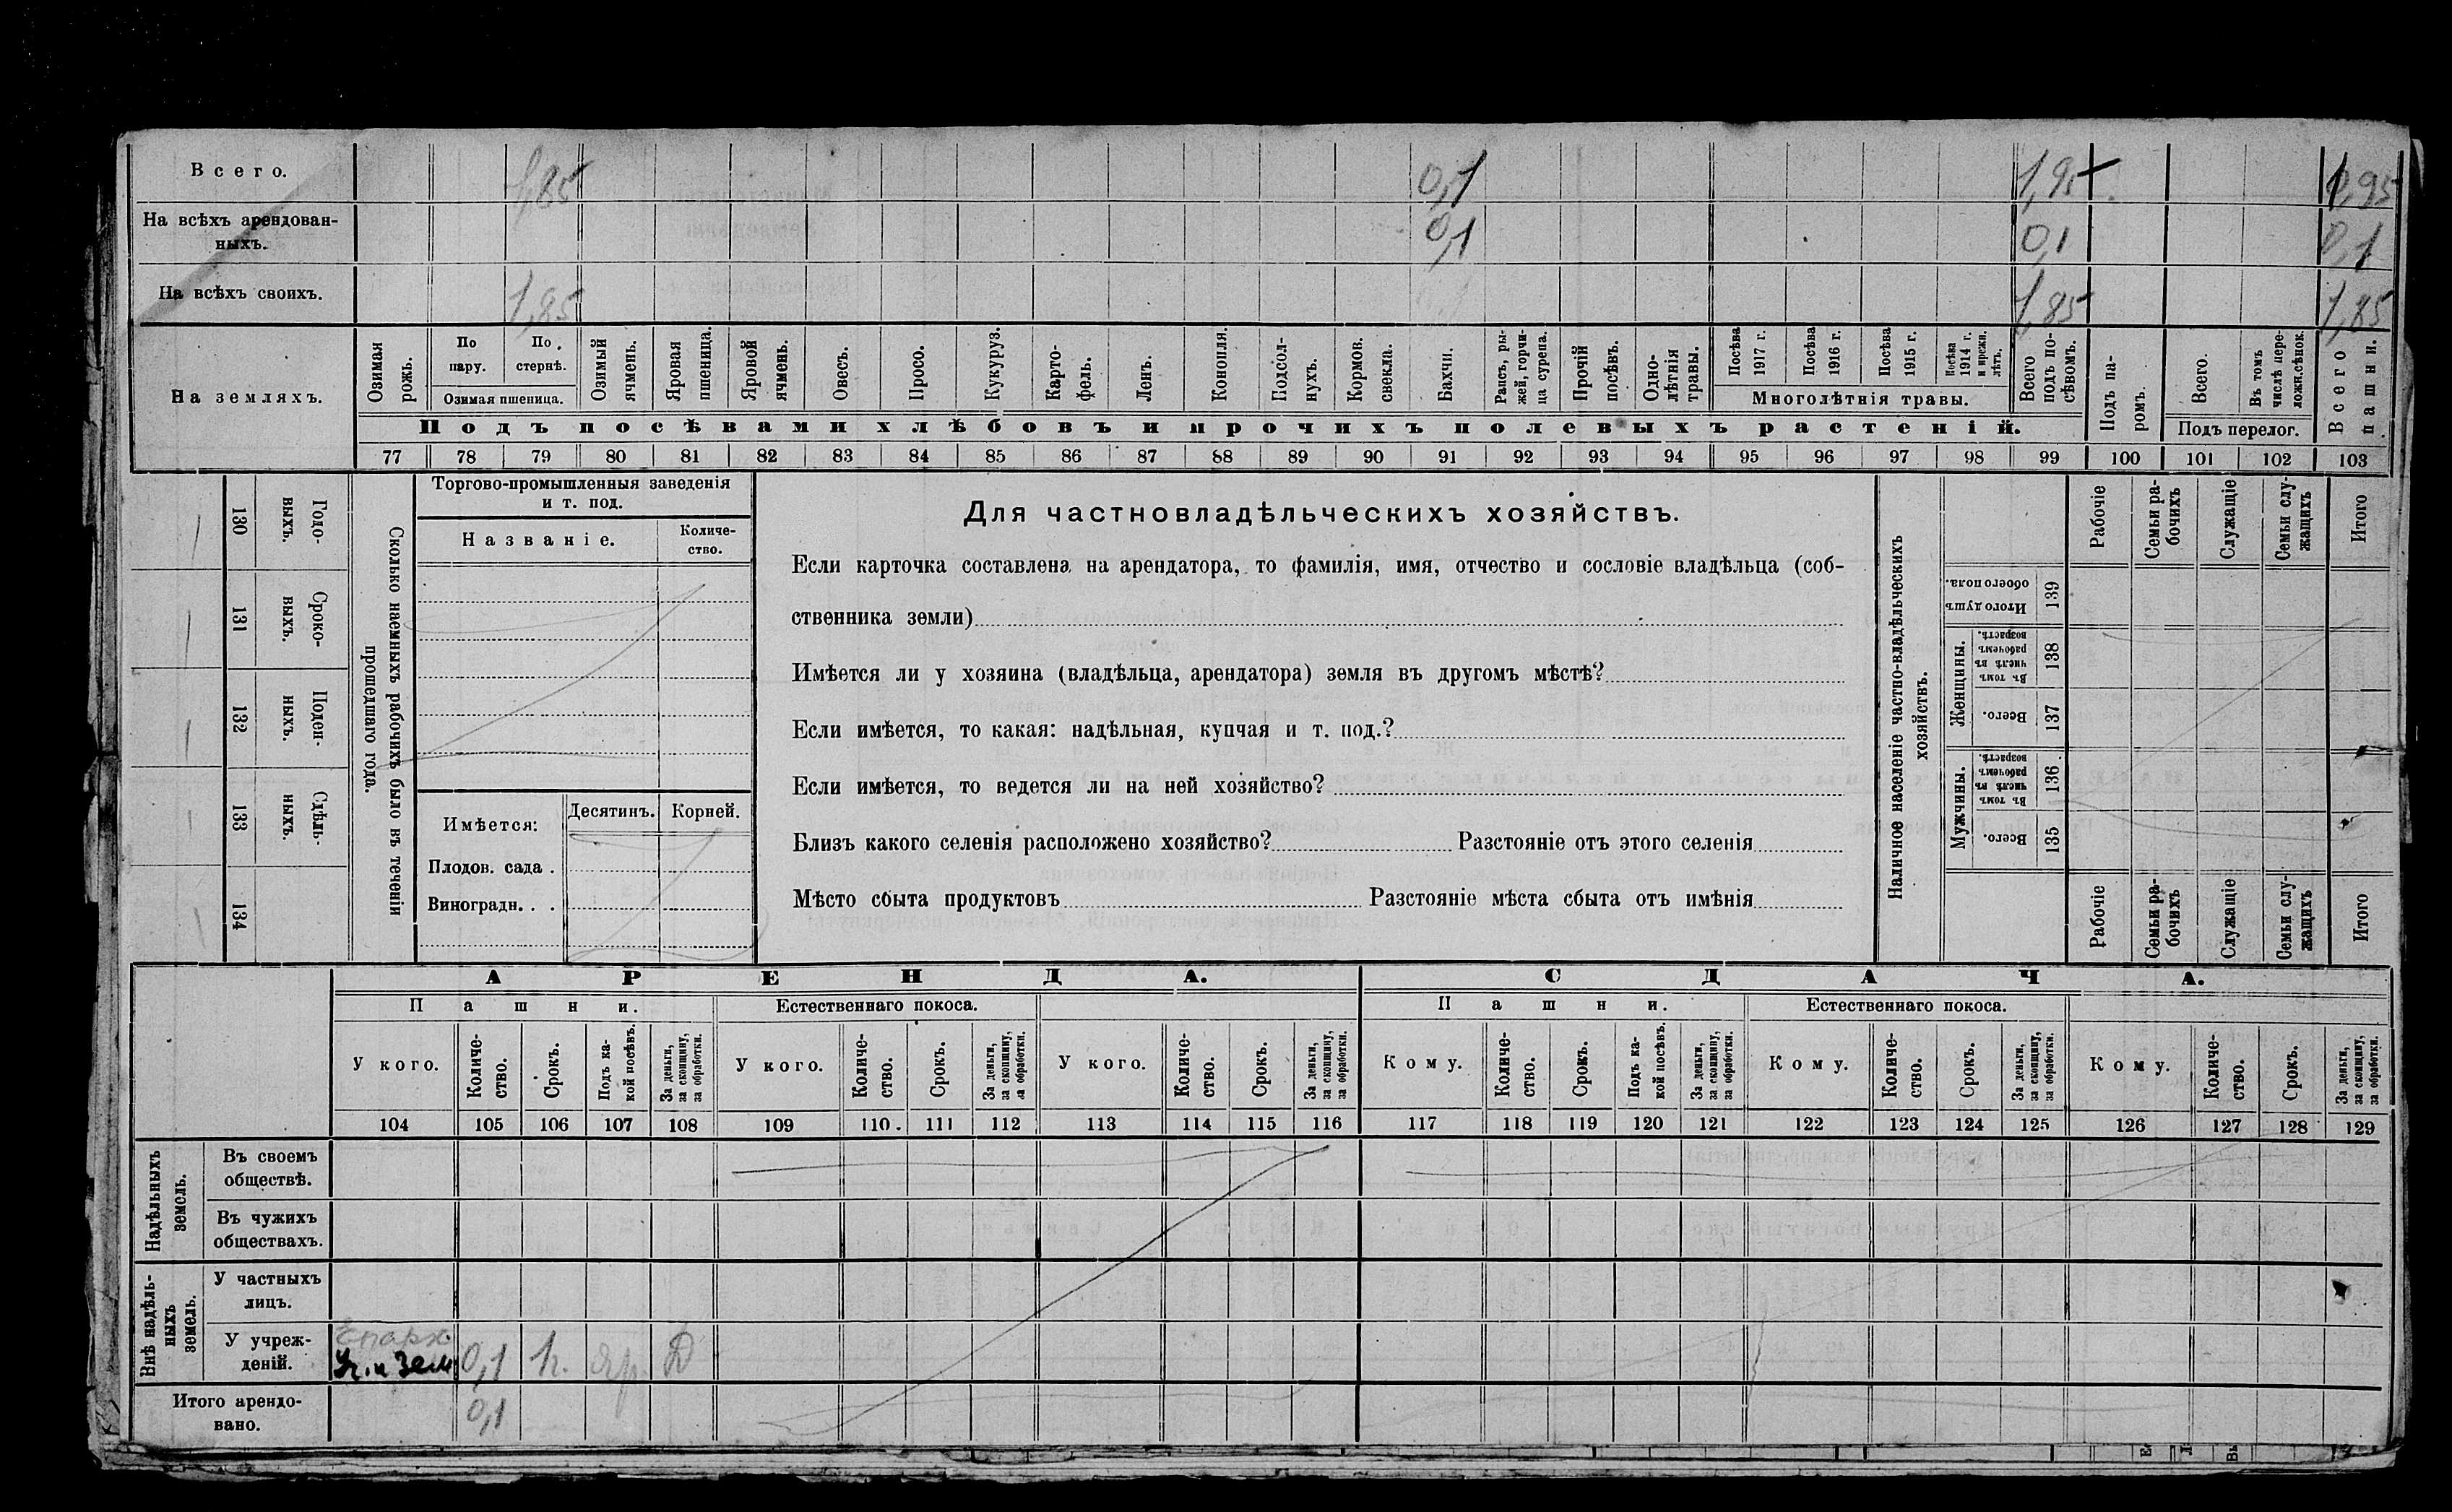 Всего. 1,85 0,1 1,95 1,95
На всѣхъ арендован-
ныхъ. 0,1 0,1 0,1
На всѣхъ своихъ. 1,85 1,85 1,85
На земляхъ.
Озимая рожь.
По пару.
По стернѣ.
Озимая пшеница.
Озимый ячмень.
Яровая пшеница.
Яровой ячмень.
Овесъ.
Просо.
Кукуруз.
Карто-
фель.
Ленъ.
Конопля.
Подсол-
нухъ.
Кормов. свекла.
Бахчи.
Рапсъ, ры-
жей, горчи-
ца сурепа.
Прочій посѣвъ.
Одно-
лѣтнія травы.
Посѣва 1917 г.
Посѣва 1916 г.
Посѣва 1915 г.
Посѣва 1914 г. и прежн. лѣтъ.
Многолѣтнія травы.
Всего подъ по-
сѣвомъ.
Подъ па-
ромъ.
Всего.
Въ томъ числѣ пере-
ложн.сѣнок.
Подъ перелог.
Всего пашни.
Подъ посѣвами хлѣбовъ и прочихъ полевыхъ растеній.
77 78 79 80 81 82 83 84 85 86 87 88 89 90 91 92 93 94 95 96 97 98 99 100 101 102 103
130 Годо-
ныхъ.
131 Сроко-
выхъ.
132 Подон-
ныхъ.
133 Сдѣль-
ныхъ.
134
Сколько наемныхъ рабочихъ было въ теченіи
прошедшаго года.
Торгово-промышленныя заведенія
и т. под.
Названіе.
Количе-
ство.
Имѣется: Десятинъ. Корней.
Плодов. сада .
Виноградн. . .
Для частновладѣльческихъ хозяйствъ.
Если карточка составлена на арендатора, то фамилія, имя, отчество и сословіе владѣльца (соб-
ственника земли)
Имѣется ли у хозяина (владѣльца, арендатора) земля въ другомъ мѣстѣ?
Если имѣется, то какая: надѣльная, купчая и т. под.?
Если имѣется, то ведется ли на ней хозяйство?
Близъ какого селенія расположено хозяйство? Разстояніе отъ этого селенія
Мѣсто сбыта продуктовъ Разстояніе мѣста сбыта отъ имѣнія
Наличное населеніе частно-владѣльческихъ
хозяйствъ.
Рабочіе
Семьи ра-
бочихъ
Служащіе
Семьи слу-
жащихъ
Итого
Итого душъ обоего пола. 139
Женщины.
Въ томъ числѣ въ рабочемъ возрастѣ. 138
Всего. 137
Мужчины.
Въ томъ числѣ въ рабочемъ возрастѣ. 136
Всего. 135
Рабочіе
Семьи ра-
бочихъ
Служащіе
Семьи слу-
жащихъ
Итого
АРЕНДА. СДАЧА.
Пашни. Естественнаго покоса. Пашни. Естественнаго покоса.
У кого.
Количе-
ство.
Срокъ.
Подъ ка-
кой посѣвъ.
За деньги,
за скопщину,
за обработки.
У кого.
Количе-
ство.
Срокъ.
За деньги,
за скопщину,
за обработки.
У кого.
Количе-
ство.
Срокъ.
За деньги,
за скопщину,
за обработки.
Кому.
Количе-
ство.
Срокъ.
Подъ ка-
кой посѣвъ.
За деньги,
за скопщину,
за обработки.
Кому.
Количе-
ство.
Срокъ.
За деньги,
за скопщину,
за обработки.
Кому.
Количе-
ство.
Срокъ.
За деньги,
за скопщину,
за обработки.
104 105 106 107 108 109 110. 111 112 113 114 115 116 117 118 119 120 121 122 123 124 125 126 127 128 129
Надѣльныхъ
земель.
Въ своемъ
обществѣ.
Въ чужихъ
обществахъ.
Внѣ надѣль-
ныхъ
земель.
У частныхъ
лицъ.
У учреж-
деній.
Епарх.
Зем 0,1 яр. Д
Итого арендо-
вано. 0,1